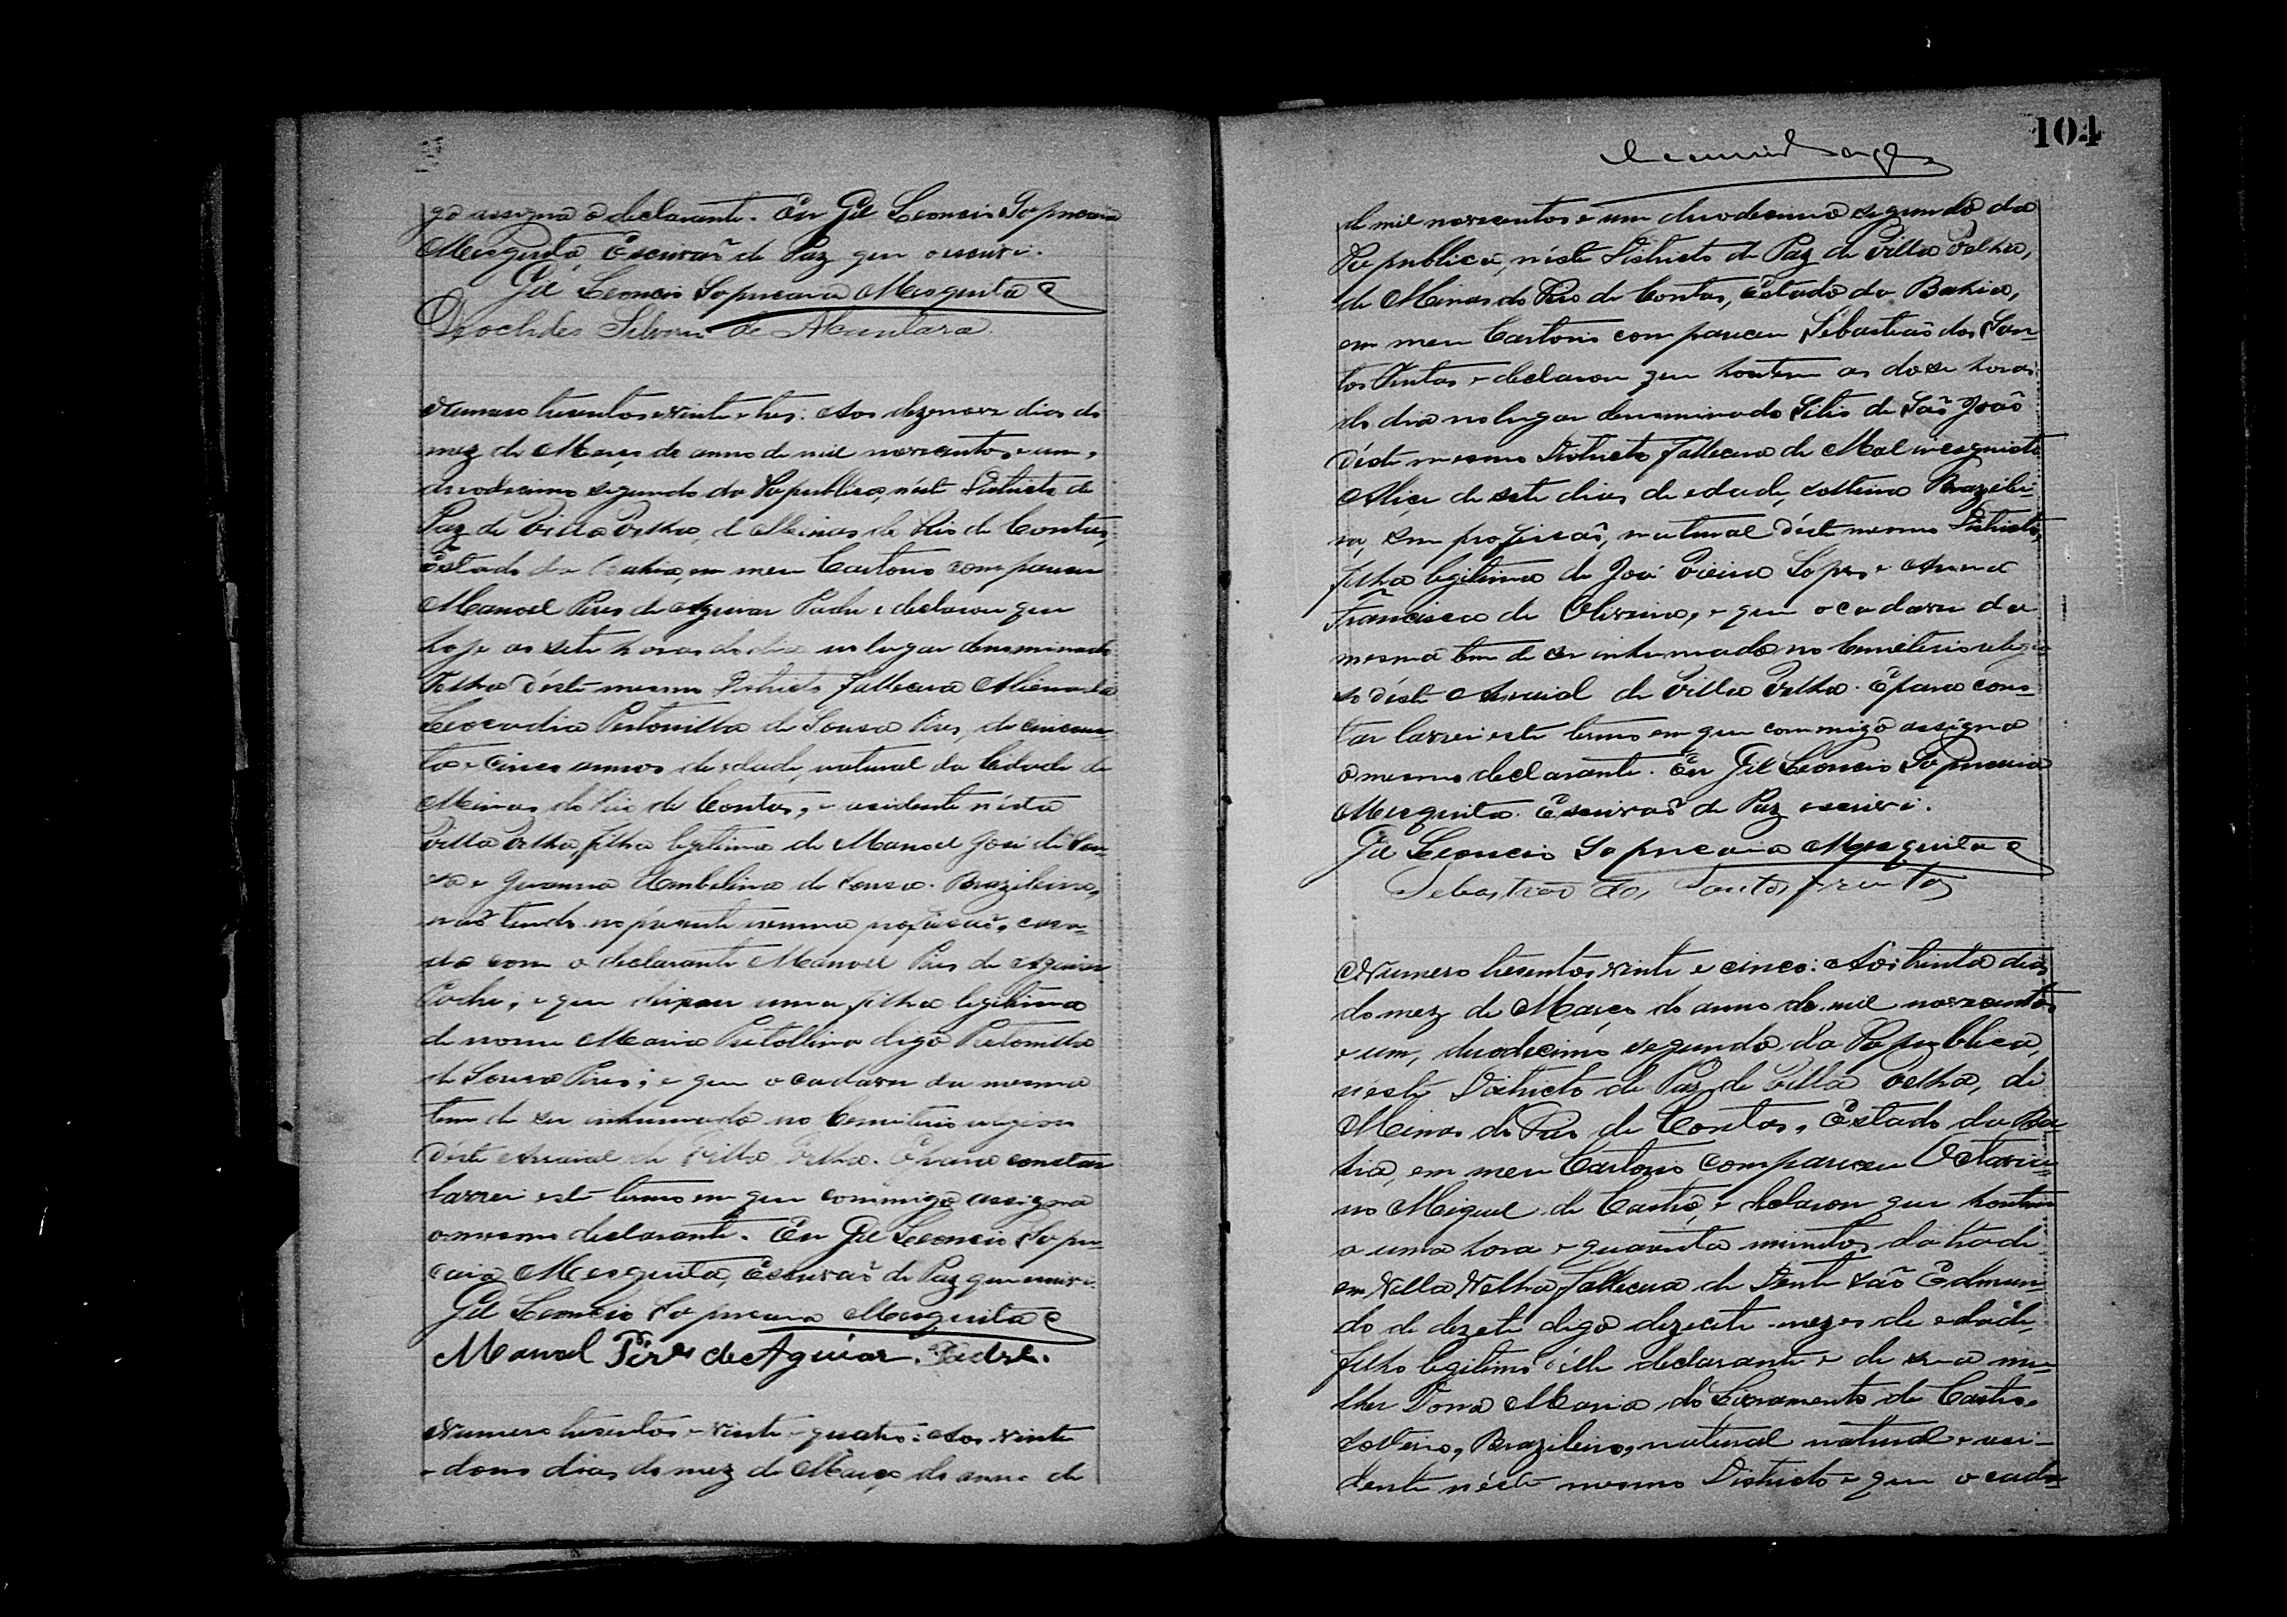 go assigna o declarante. Eu Gil Leoncio Sapucaia
Mesquita, Escrivaõ de Paz que o escrevi.
Gil Leoncio Sapucaia Mesquita
Deoclides de Alcantara
Numero tresentos e vinte e tres: Aos dezenove dias do
mez de Março do anno de mil novecentos e um,
duodecimo segundo da Republica, n'éste Districto de
Paz de Villa Velha, de Minas do Rio de Contas,
Estado da Bahia, em meu Cartorio compareceu
Manoel Pires de Aguiar Padre e declarou que
hoje as sete horas do dia no lugar denominado
d'éste mesmo Districto falleceu
Leocadia Petronilha de Sousa Pires, de cincoen-
ta e cinco annos de edade, natural da Cidade de
Minas do Rio de Contas, e residente n'ésta
Villa Velha, filha legitima de Manoel José de Sou-
sa e Joanna Umbelina de Sousa. Brazileira,
naõ tendo no presente nenuma profissaõ, casa-
da com o declarante Manoel Pires de Aguiar
Padre, e que deixou uma filha legitima
de nome Maria digo Petronilha
de Sousa Pires; e que o cadaver da mesma
tem de ser inhumado no Cemiterio religioso
d'éste Arraial de Villa Velha. E para constar
lavrei este termo em que commigo assigna
o mesmo declarante. Eu Gil Leoncio Sapu-
caia Mesquita, Escrivaõ de Paz que escrevi.
Gil Leoncio Sapucaia Mesquita
Manoel Pires de Aguiar. Padre.
Numero tresentos e vinte e quatro: Aos vinte
e dous dias do mez de Março do anno de
104
de mil novecentos e um duodecimo segundo da
Republica, n'éste Districto de Paz de Villa Velha,
de Minas do Rio de Contas, Estado da Bahia,
em meu Cartorio compareceu Sebastiaõ dos San-
tos Freitas e declarou que hontem as dose horas
do dia no lugar denominado Sitio de Saõ Joaõ
d'éste mesmo Districto falleceu de Mal
Alice de sete dias de edade, solteira Brazilei-
ra, sem profissaõ, natural d'éste mesmo Districto,
filha legitima de José Vieira Lopes e Anna
Francisca de Oliveira, e que o cadaver da
mesma tem de ser inhumado no Cemiterio religio-
so d'éste Arraial de Villa Velha. E para cons-
tar lavrei este termo em que commigo assigna
o mesmo declarante. Eu Gil Leoncio Sapucaia
Mesquita. Escrivaõ de Paz escrevi.
Gil Leoncio Sapucaia Mesquita
Sebastiaõ dos Santos Freitas
Numero tresentos vinte e cinco: Aos trinta dias
do mez de Março do anno de mil novecentos
e um, duodecimo segundo da Republica,
n'este Districto de Paz de Villa Velha, de
Minas do Rio de Contas, Estado da Ba-
hia, em meu Cartorio compareceu Octavia-
no Miguel de Castro, e declarou que hontem
a uma hora e quarenta minutos da tarde
em Villa Velha falleceu de Edmun-
do de dezete digo dezecete mezes de edade,
filho legitimo d'elle declarante e de sua mu-
lher Dona Maria do Sacramento de Castro,
solteiro, Brazileiro, natural natural e resi-
dente n'éste mesmo Districto e que o cada-